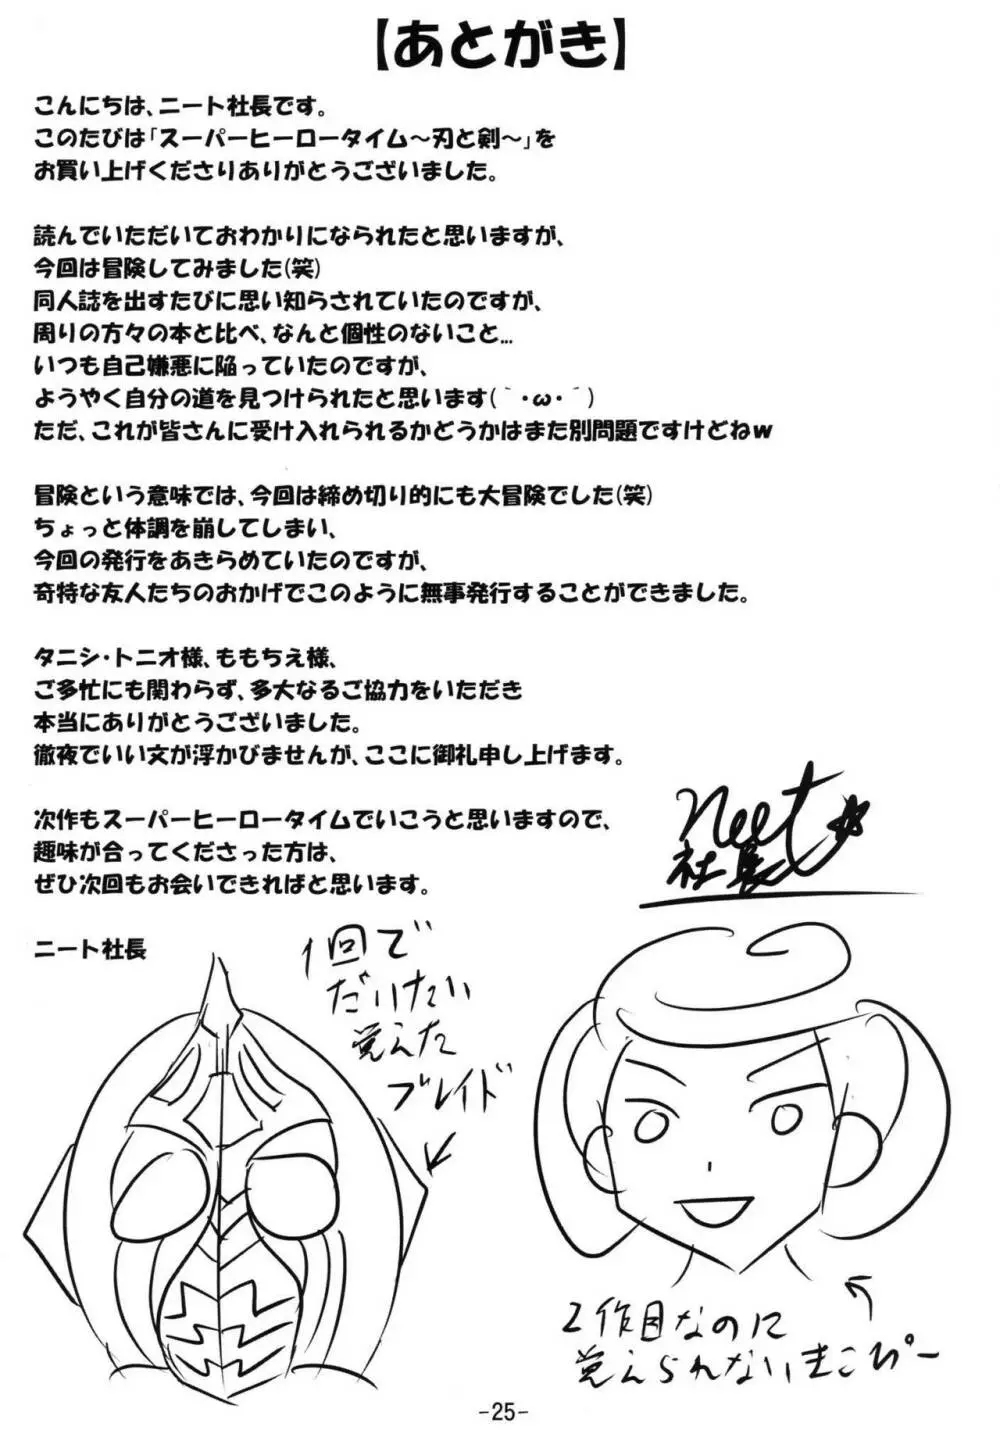 【あとがき】
こんにちは、ニート社長です。
このたびは「スーパーヒーロータイム～刃と剣～」を
お買い上げくださりありがとうございました。
読んでいただいておわかりになられたと思いますが、
今回は冒険してみました(笑)
同人誌を出すたびに思い知らされていたのですが、
周りの方々の本と比べ、なんと個性のないこと…
いつも自己嫌悪に陥っていたのですが、
ようやく自分の道を見つけられたと思います(｀・ω・´)
ただ、これが皆さんに受け入れられるかどうかはまた別問題ですけどねw
冒険という意味では、今回は締め切り的にも大冒険でした(笑)
ちょっと体調を崩してしまい、
今回の発行をあきらめていたのですが、
奇特な友人たちのおかげでこのように無事発行することができました。
タニシ・トニオ様、ももちえ様、
ご多忙にも関わらず、多大なるご協力をいただき
本当にありがとうございました。
徹夜でいい文が浮かびませんが、ここに御礼申し上げます。
次作もスーパーヒーロータイムでいこうと思いますので、
趣味が合ってくださった方は、
ぜひ次回もお会いできればと思います。
ニート社長
neet
社長
1回で
だいたい
覚えた
ブレイド
2作目なのに
覚えられないまこぴー
-25-